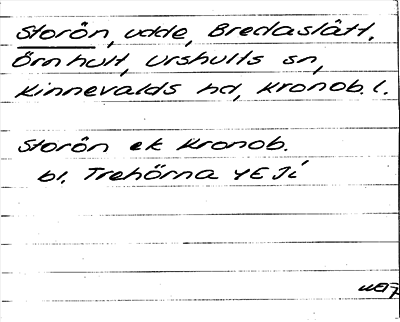 Storön, udde, Bredaslätt,
Örnhult, Urshults sn,
Kinnevalds hd, Kronob. l.
Storön ek Kronob.
bl. Trehörna YE Jí